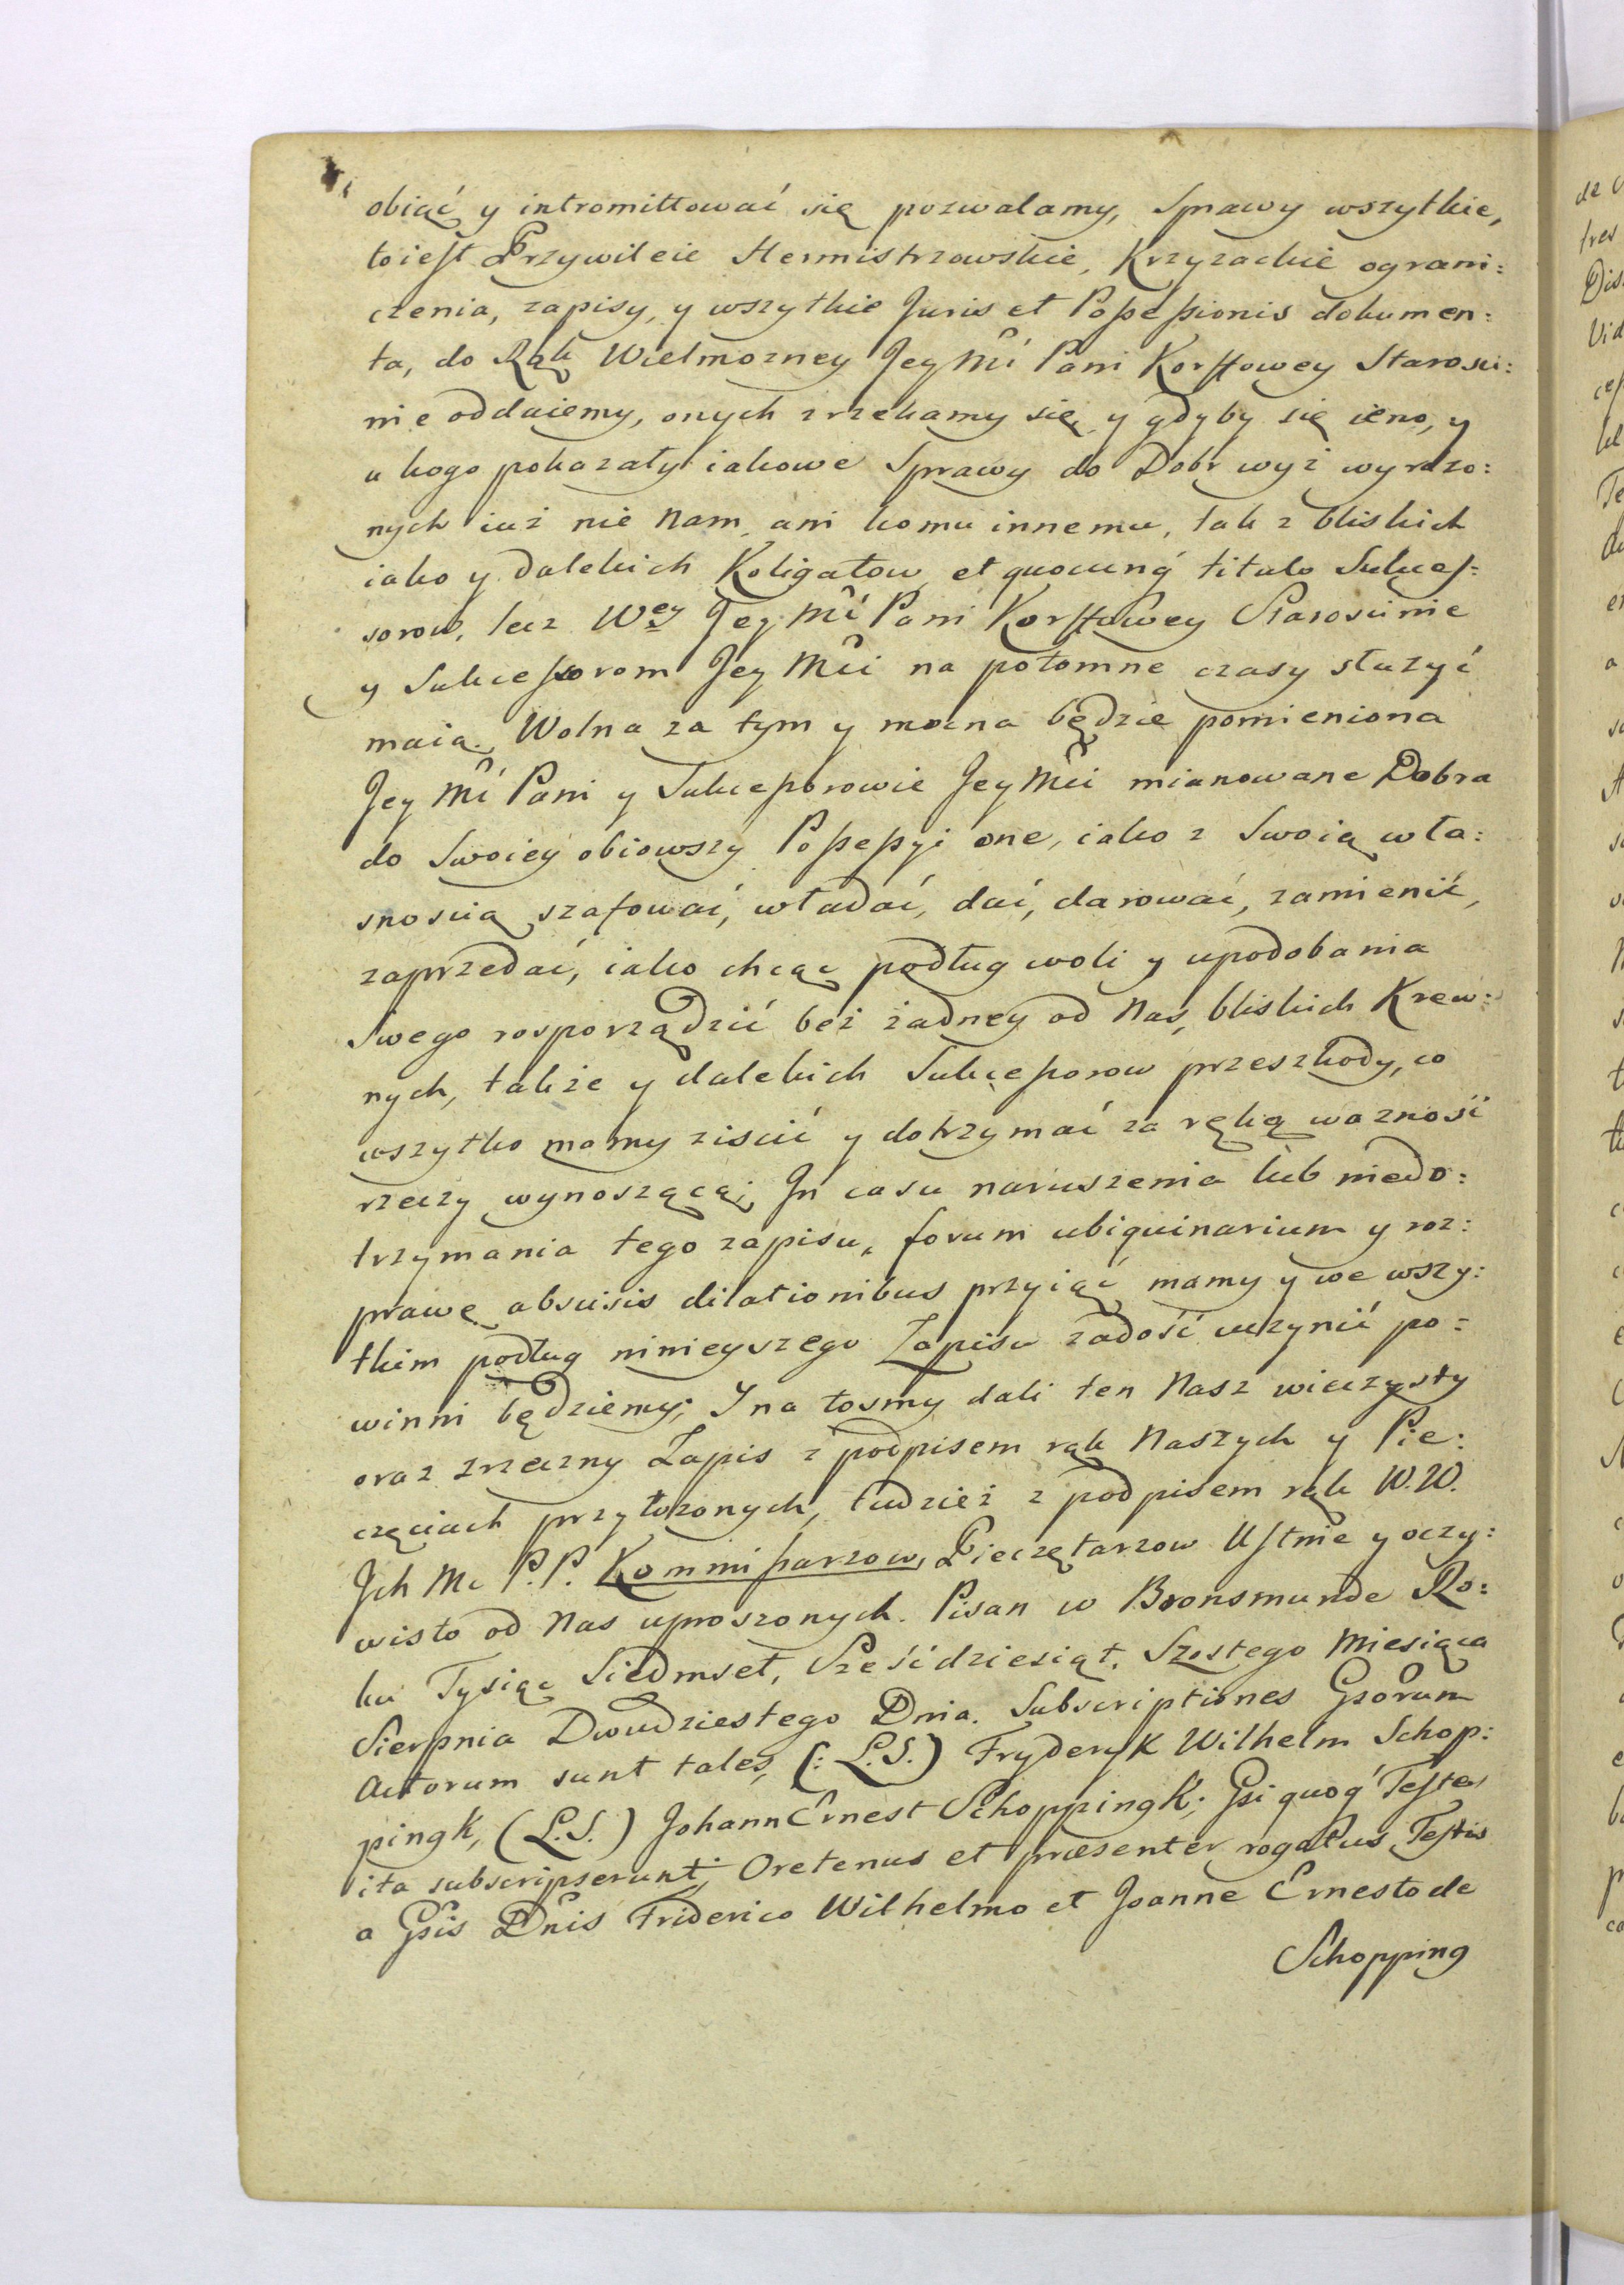 obiąć y intromittować się pozwalamy, Sprawy wszytkie,
toiest Przywileie Hermistrzowskie, Krzyzackie ograni:
czenia, zapisy, y wszytkie Juris et Possessionis dokumen:
ta, do Rąk Wielmozney Jey Mći Pani Korffowey Starosci:
nie oddaiemy, onych zrzekamy się, y gdyby się ieno, y
u kogo pokazały iakowe Sprawy do Dobr wyż wyrażo:
nych iuż nie Nam, ani komu innemu, tak z bliskich
iako y dalekich Koligatow, et quocunq́ titulo Sukces:
sorow, lecz Wey Jey Mći Pani Korffowey Starościnie
y Sukcessorom Jey Mći na potomne czasy służyć
maią. Wolna za tym y mocna będzie pomieniona
Jey Mći Pani y Sukcessorowie Jey Mći mianowane Dobra
do Swoiey obiowszy Possessyi one, iako z Swoią wła:
snoscią szafować, władać, dać, darować, zamienić,
zaprzedać, iako chcąc podług woli y upodobania
Swego rosporządzić beż żadney od Nas, bliskich Krew:
nych, także y dalekich Sukcessorow przeszkody, co
wszytko mamy ziscić y dotrzymać za ręką ważność
rzeczy wynoszącą; In casu naruszenia lub niedo:
trzymania tego zapisu, forum ubiquinarium y roz:
prawę abscisis dilationibus przyiąć mamy y we wszy:
tkim podług ninieyszego Zapisu zadość uczynić po:
winni będziemy; Y na tosmy dali ten Nasz wieczysty
oraz zrzeczny Zapis z podpisem rąk Naszych y Pie:
częciach przyłożonych, tudzież z podpisem rąk W.W.
Jch Mc P.P. Kommissarzow, Pieczętarzow Ustnie y oczy:
wisto od Nas uproszonych. Pisan w Bronsmunde Ro:
ku Tysiąc Siedmset, Sześćdziesiąt, Szostego Miesiąca
Sierpnia Dwudziestego Dnia. Subscriptiones Gsorum
Actorum sunt tales, (: L.S.) Fryderyk Wilhelm Schop:
pingk, (L.S.) Johann Ernest Schoppingk; Gsi quoq́ Testes
ita subscripserunt; Oretenus et præsenter rogatus Testis
a Gsis Dnis Friderico Wilhelmo et Joanne Ernesto de
Schopping